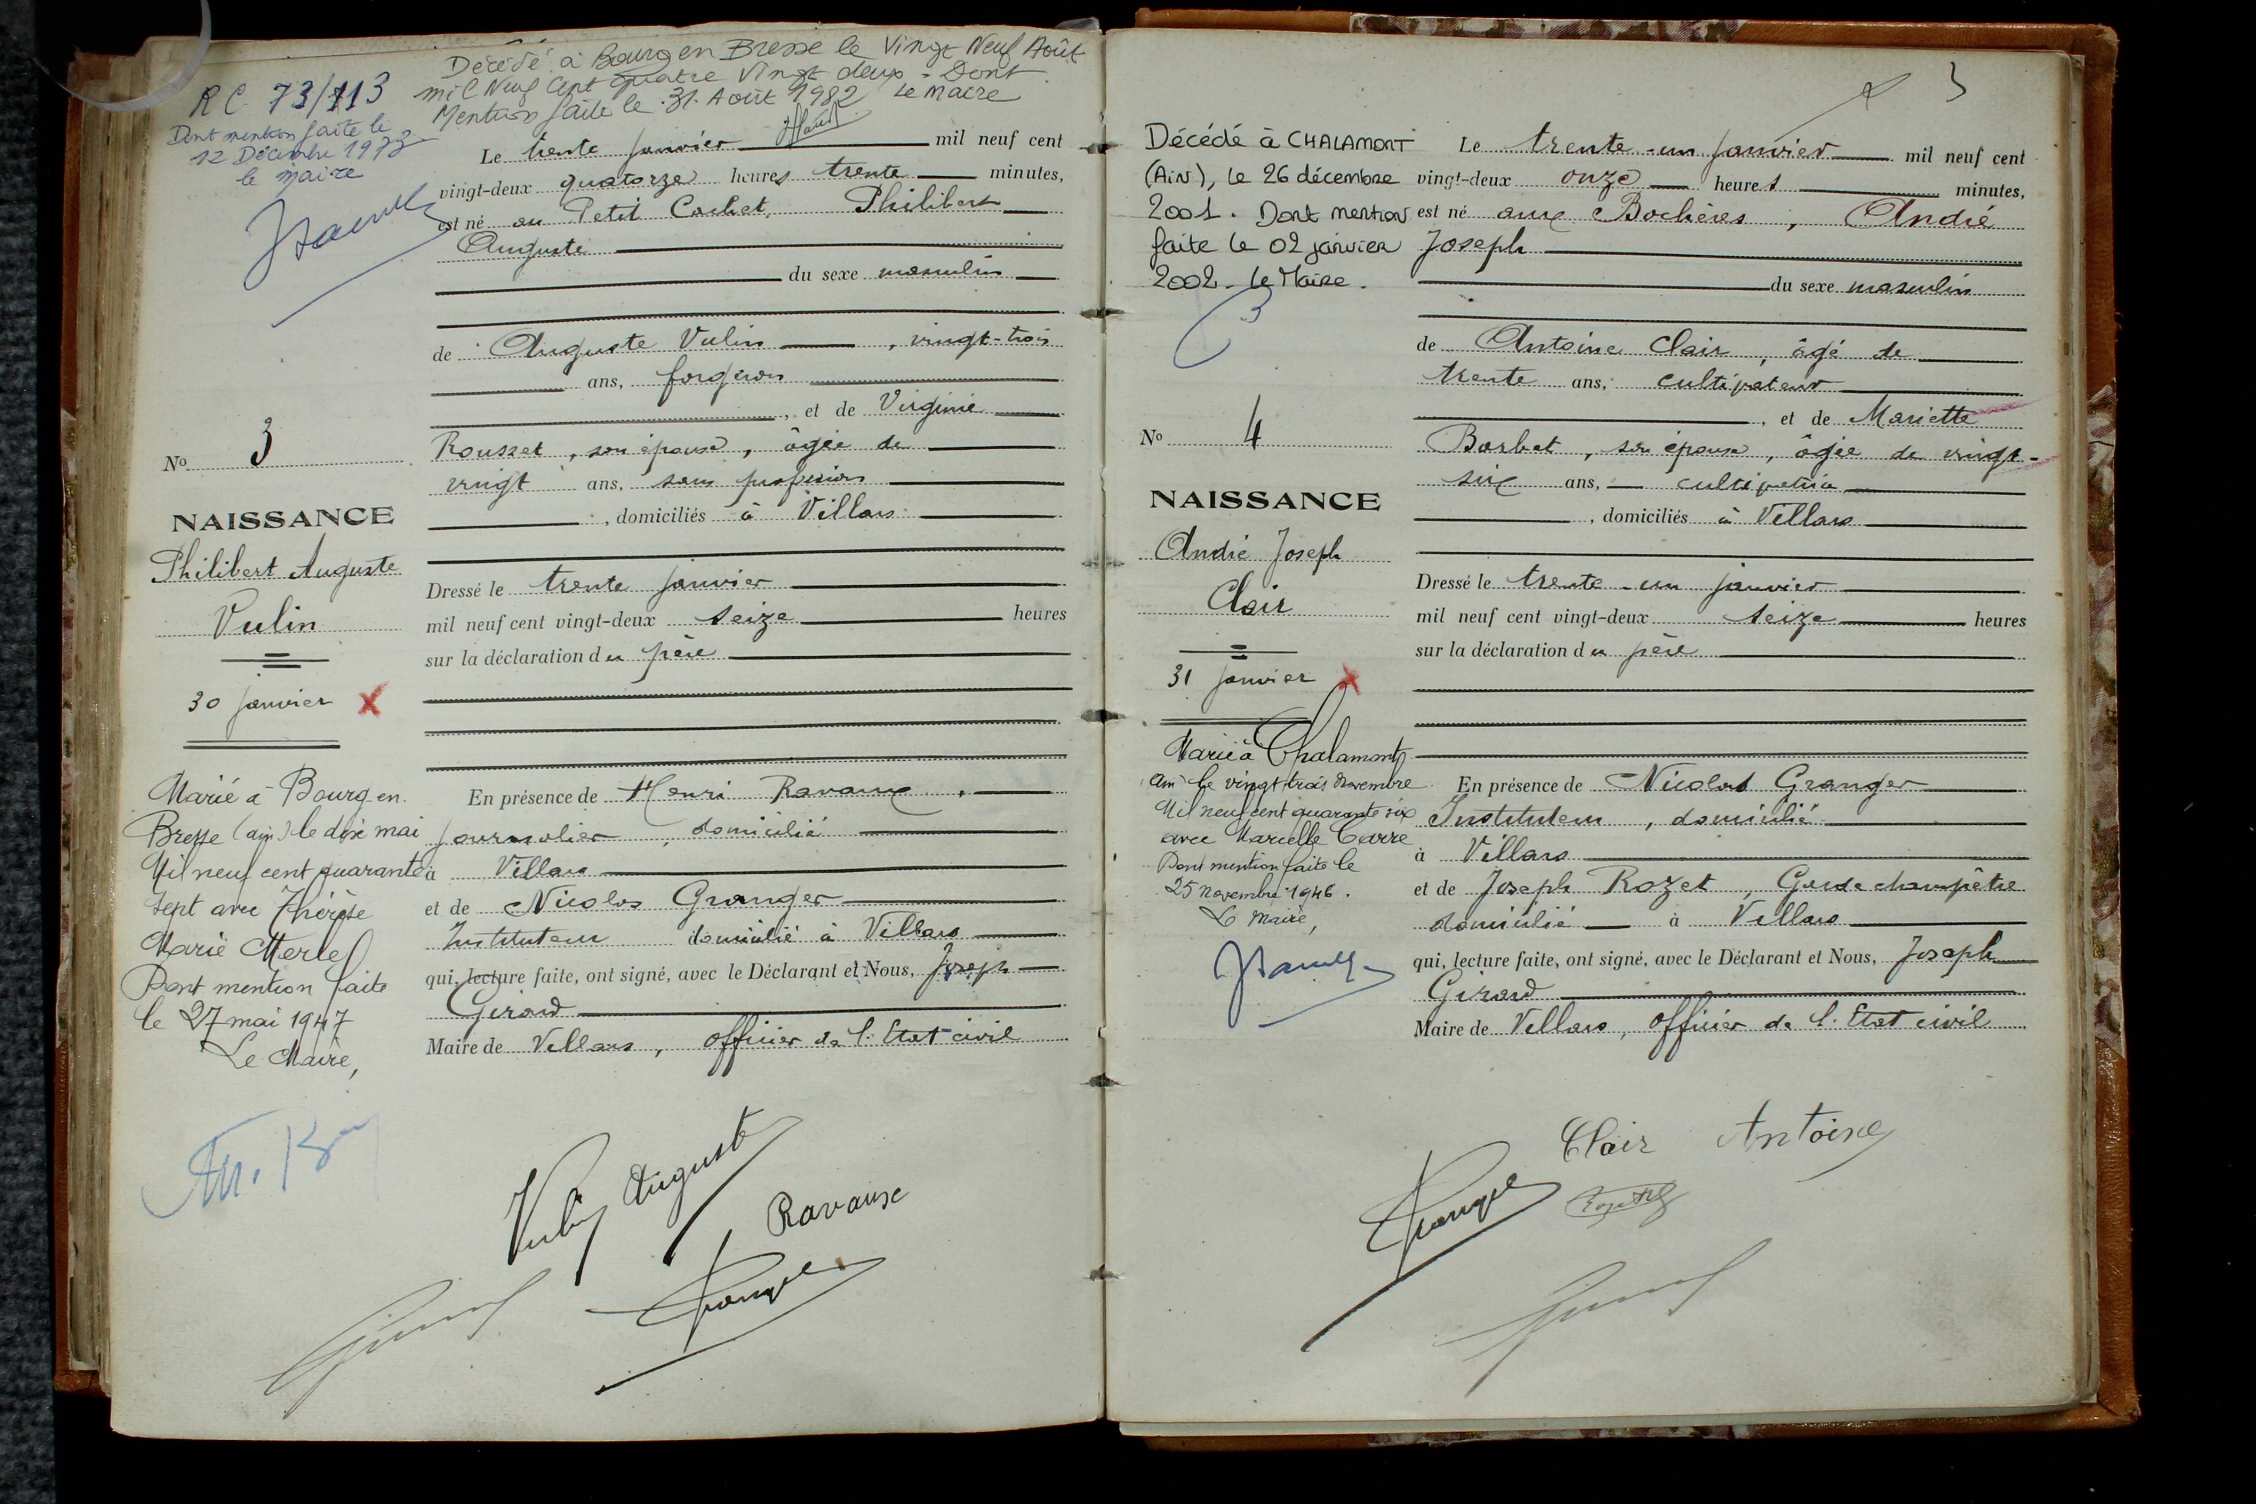 Décédé à Bourg en Bresse le Vingt Neuf Août
mil Neuf Cent quatre Vingt deux - Dont
Mention faite le 31 Août 1982 Le Maire
RC 73/113
Dont mention faite le
12 Décembre 1973
le Maire
Le trente janvier mil neuf cent
vingt-deux quatorze heures trente minutes,
est né au Petit Cachet, Philibert
Auguste
du sexe masculin
de Auguste Vulin, vingt-trois
ans, forgeron
, et de Virginie
Rousset, son épouse, âgée de
vingt ans, sans profession
, domiciliés à Villars
Dressé le trente janvier
mil neuf cent vingt-deux seize heures
sur la déclaration du père
En présence de Henri Ravaux,
journalier, domicilié
à Villars
et de Nicolas Granger
Instituteur domicilié à Villars
qui, lecture faite, ont signé, avec le Déclarant et Nous, Joseph
Girard
Maire de Villars, officier de l'Etat civil
No 3
NAISSANCE
Philibert Auguste
Vulin
30 janvier X
Marié à Bourg en
Bresse (ain) le dix mai
Mil neuf cent quarante
sept avec Thérèse
Marie Merle
Dont mention faite
le 27 mai 1947
Le Maire,
Vulin Auguste
Ravaux
Granger
3
Décédé à CHALAMONT
(AIN), le 26 décembre
2001. Dont mention
faite le 02 janvier
2002. Le Maire.
Le trente-un janvier mil neuf cent
vingt-deux onze heures minutes,
est né aux Bochères, André
Joseph
du sexe masculin
de Antoine Clair, âgé de
trente ans, cultivateur
, et de Mariette
Barbet, son épouse, âgée de vingt-
six ans, cultivatrice
, domiciliés à Villars
Dressé le trente-un janvier
mil neuf cent vingt-deux seize heures
sur la déclaration du père
En présence de Nicolas Granger
Instituteur, domicilié
à Villars
et de Joseph Rozet, Garde champêtre
domicilié à Villars
qui, lecture faite, ont signé, avec le Déclarant et Nous, Joseph
Girard
Maire de Villars, officier de l'Etat civil
No 4
NAISSANCE
André Joseph
Clair
31 janvier X
Marié à Chalamont
(Ain) le vingt trois novembre
Mil neuf cent quarante six
avec Marcelle Carre
Dont mention faite le
25 novembre 1946.
Le Maire,
Clair Antoine
Granger